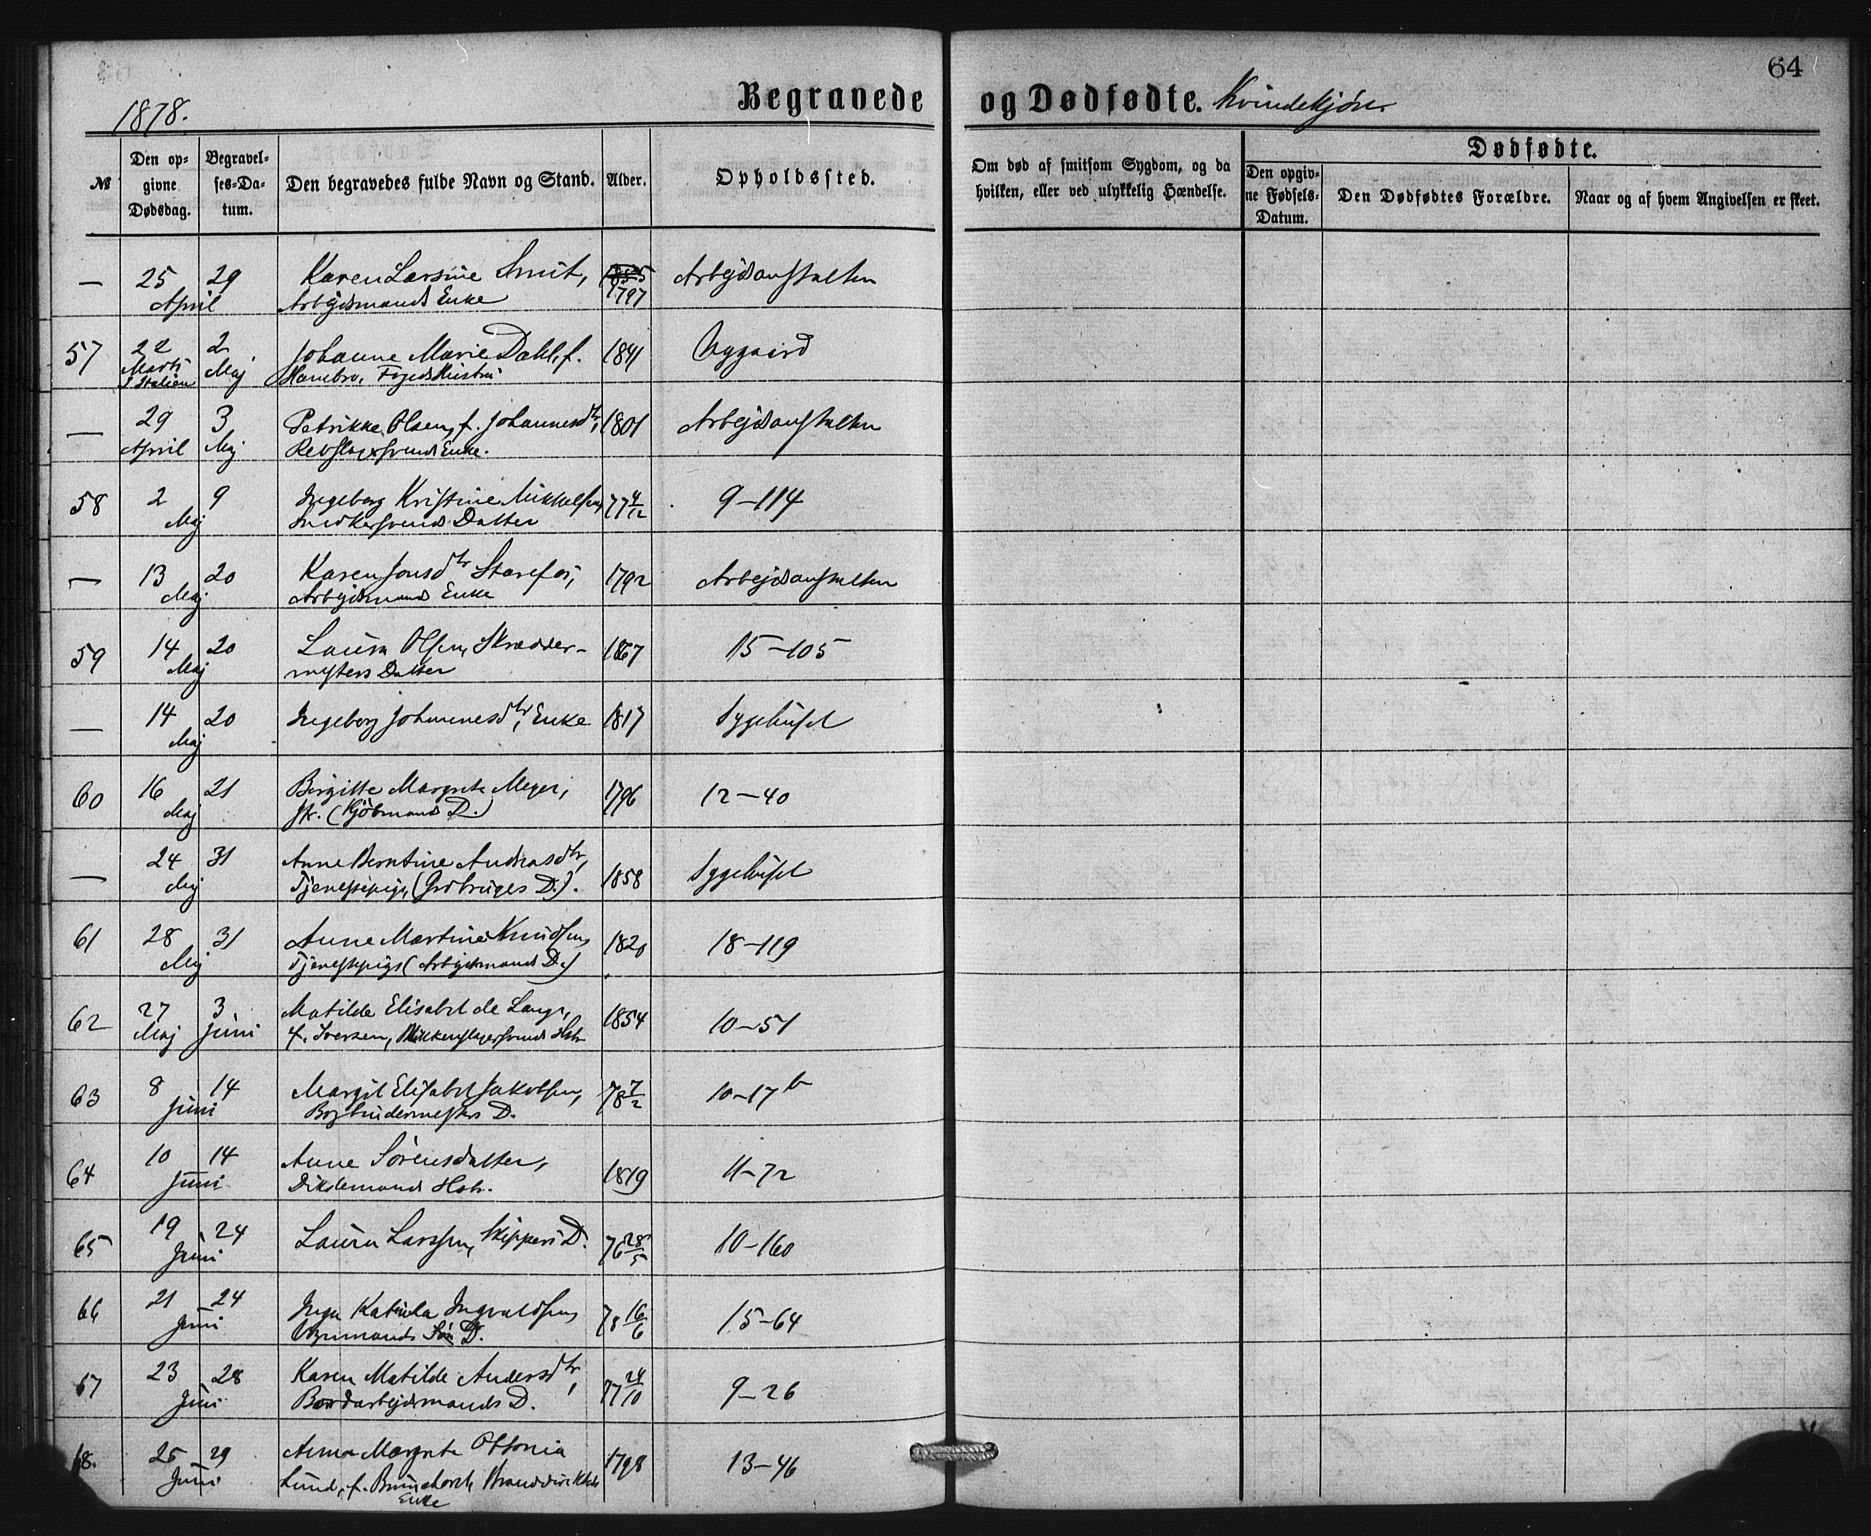 64
1878.
Begravede og Dødfødte. Kvindekjøn.
№
Den opgivne Dødsdag.
Begravelses-Datum.
Den begravedes fulde Navn og Stand.
Alder.
Opholdssted.
Om død af smitsom Sygdom, og da hvilken, eller ved ulykkelig Hændelse.
Dødfødte.
Den opgivne Fødsels-Datum.
Den Dødfødtes Forældre.
Naar og af hvem Angivelsen er skeet.
— 25 29 Karen Larsine Smit, 1855 Arbejdsanstalten
April Arbejdsmands Enke 1797
57 22 2 Johanne Marie Dahl, f. 1841 Nygaard
Marts Maj Hambro, Fogeds Hustru
I Italien
— 29 3 Petrikke Olsen, f. Johannesdtr, 1801 Arbejdsanstalten
April Maj Rebslagersvends Enke.
58 2 9 Ingeborg Kristine Mikkelsen, 77 4/12 9-114
Maj Snedkersvends Datter
— 13 20 Karen Jonsdtr Starefos, 1792 Arbejdsanstalten
Maj Arbejdsmands Enke
59 14 20 Laura Olsen, Skrædder- 1867 15-105
Maj mesters Datter
— 14 20 Ingeborg Johannesdtr, Enke 1817 Sygehuset
Maj
60 16 21 Birgitte Margrete Meyer, 1796 12-40
Maj Fr. (Kjøbmands D.)
— 24 31 Anne Berntine Andreasdtr, 1858 Sygehuset
Maj Tjenestepige, (Grdbruges D.).
61 28 31 Anne Martine Knudsen, 1820 18-119
Maj Tjenestepige (Arbejdsmands D.)
62 27 3 Matilde Elisabet de Lange, 1854 10-51
Maj Juni f. Iversen, Blikkenslagersvends Hstr
63 8 14 Margit Elisabet Jakobsen, 78 7/2 10-17 b
Juni Bogbindermesters D.
64 10 14 Anne Sørensdatter, 1819 11-72
Juni Hstr.
65 19 24 Laura Larsen, Skippers D. 76 28/5 10-160
Juni
66 21 24 Inga Katinka Ingvaldsen, 78 16/6 15-64
Juni Søn D.
67 23 28 Karen Matilde Andersdtr, 77 24/10 9-26
Juni Bordarbejdsmands D.
68. 25 29 Anna Margrete Ottonia 1798 13-46
Juni Lund, f. Brunchorst, Branddirektørs
Enke